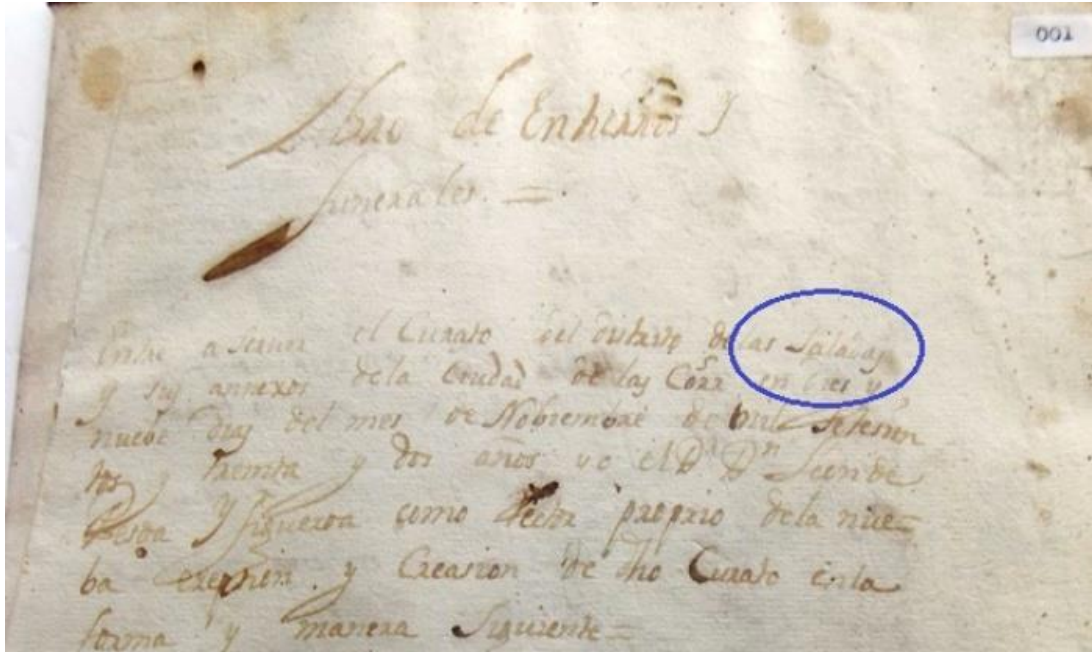 001
Libro de Entierros y
funerales. =
Entre a servir el Curato del distrito de las Saladas
y sus annexos de la Ciudad de las Corr.s en dies y
nuebe dias del mes de Nobiembre de mil setesien
tos y treinta y dos años yo el D.r D.n
y figueroa como Rector proprio de la nue=
ba y Creasion de dho Curato en la
forma y manera siguiente=